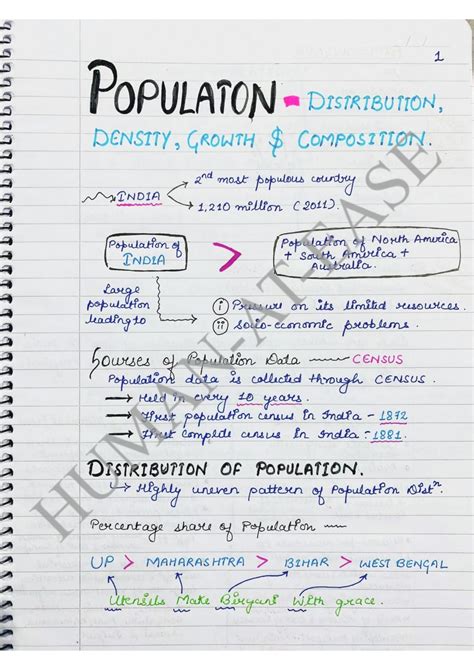 1
POPULATON - DISTRIBUTION,
DENSITY, GROWTH $ COMPOSITION.
INDIA → 2nd most populous country
→ 1,210 million (2011).
Population of INDIA > Population of North America + South America + Australia.
Large population leading to
(i) Pressure on its limited resources.
(ii) Socio-economic problems.
Sourses of Population Data CENSUS
Population data is collected through CENSUS.
→ Held in every 10 years.
→ First population census in India - 1872
→ First complete census in India - 1881.
DISTRIBUTION OF POPULATION.
→ Highly uneven pattern of Population Distn.
Percentage share of Population
UP > MAHARASHTRA > BIHAR > WEST BENGAL
Utensils Make Biryani With grace.
HUMAN-AT-EASE